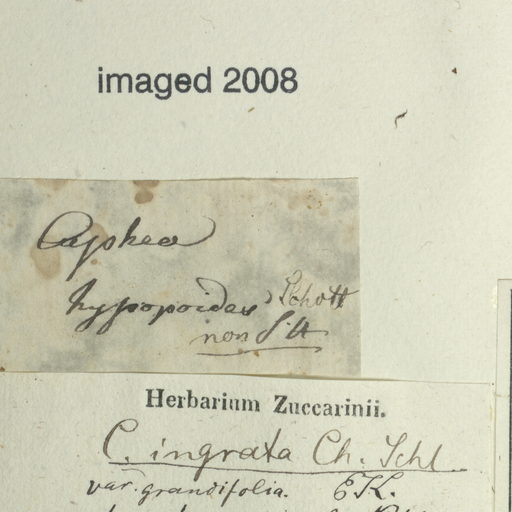 imaged 2008
Cuphea
hyssopoides Schott
non S. H.
Herbarium Zuccarinii.
C. ingrata Ch. Schl
var. grandifolia. EK.